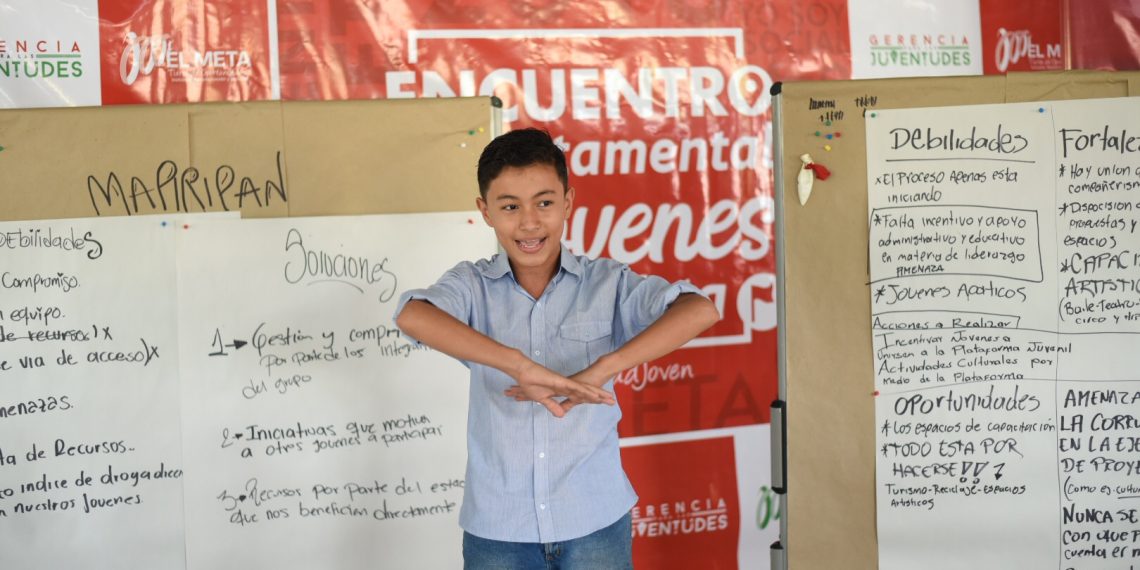 ENCIA
VENTUDES
EL META
ENCUENTRO
tamental
venes
adJoven
META
GERENCIA
JUVENTUDES
EL M
ERENCIA
VENTUDES
MAPIRIPAN
DEbilidades
Compromiso.
equipo.
de recurso) X
e via de acceso) X
menazas.
ta de Recursos..
indice de drogadicc
n nuestros Jovenes
Soluciones
1 → Gestión y compr
por parte de los integran
del grupo
2 - Iniciativas que motiva
a otros jovenes a participar
3 - Recursos por parte del estad
que nos benefician directamente
Debilidades
x El Proceso Apenas esta
iniciando
* Falta incentivo y apoyo
administrativo y educativo
en materia de liderazgo
AMENAZA
* Jovenes Apaticos
Acciones a Realizar
Incentivar Jovenes a
Unirsen a la Plataforma Juvenil
Actividades Culturales por
medio de la Plataforma
Oportunidades
* los espacios de capacitación
* TODO ESTA POR
HACERSE!!!??
Turismo-Reciclaje-espacios
Artisticos
Fortalez
* Hay union
compañerism
* Disposicion
propuestas y
espacios
* CAPACI
ARTISTIC
(Baile-Teatro
circo y
AMENAZA
LA CORRU
EN LA EJE
DE PROYE
(Como es cultu
NUNCA SE
con que
cuenta el m